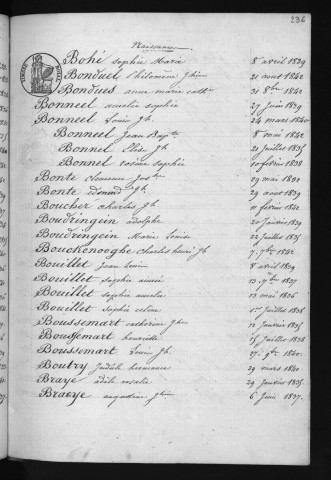 236
Naissances
TIMBRE ROYAL
Bohé sophie Marie 8 avril 1829
Bonduel philomene Jhine 21 aout 1842
Bondues anne marie cathne 21 8bre 1842
Bonneel amelie sophie 27 juin 1829
Bonneel Louis Jh 24 mars 1840
Bonneel Jean Bapte 8 mai 1842
Bonnel Elise Jh 21 juillet 1835
Bonnel rosine sophie 10 fevrier 1838
Bonte clemence Josne 29 mai 1832
Bonte édouard Jh 29 aout 1839
Boucher charles Jh 11 fevrier 1842
Boudringein adolphe 20 janvier 1839
Boudringein Marie Louise 22 juillet 1835
Bouckenooghe charles henri Jh 7 7bre 1842
Bouillet Jean Louis 8 avril 1839
Bouillet sophie aimée 13 7bre 1837
Bouillet sophie amelie 13 mai 1836
Bouillet sophie celina 1er juillet 1838
Boussemart catherine Jhine 12 janvier 1835
Boussemart henriette 15 juillet 1838
Boussemart Louis Jh 27 9bre 1840
Boutry Judith hermance 29 mars 1840
Braye adèle rosalie 29 janvier 1835
Braeye augustine Jhine 6 juin 1837